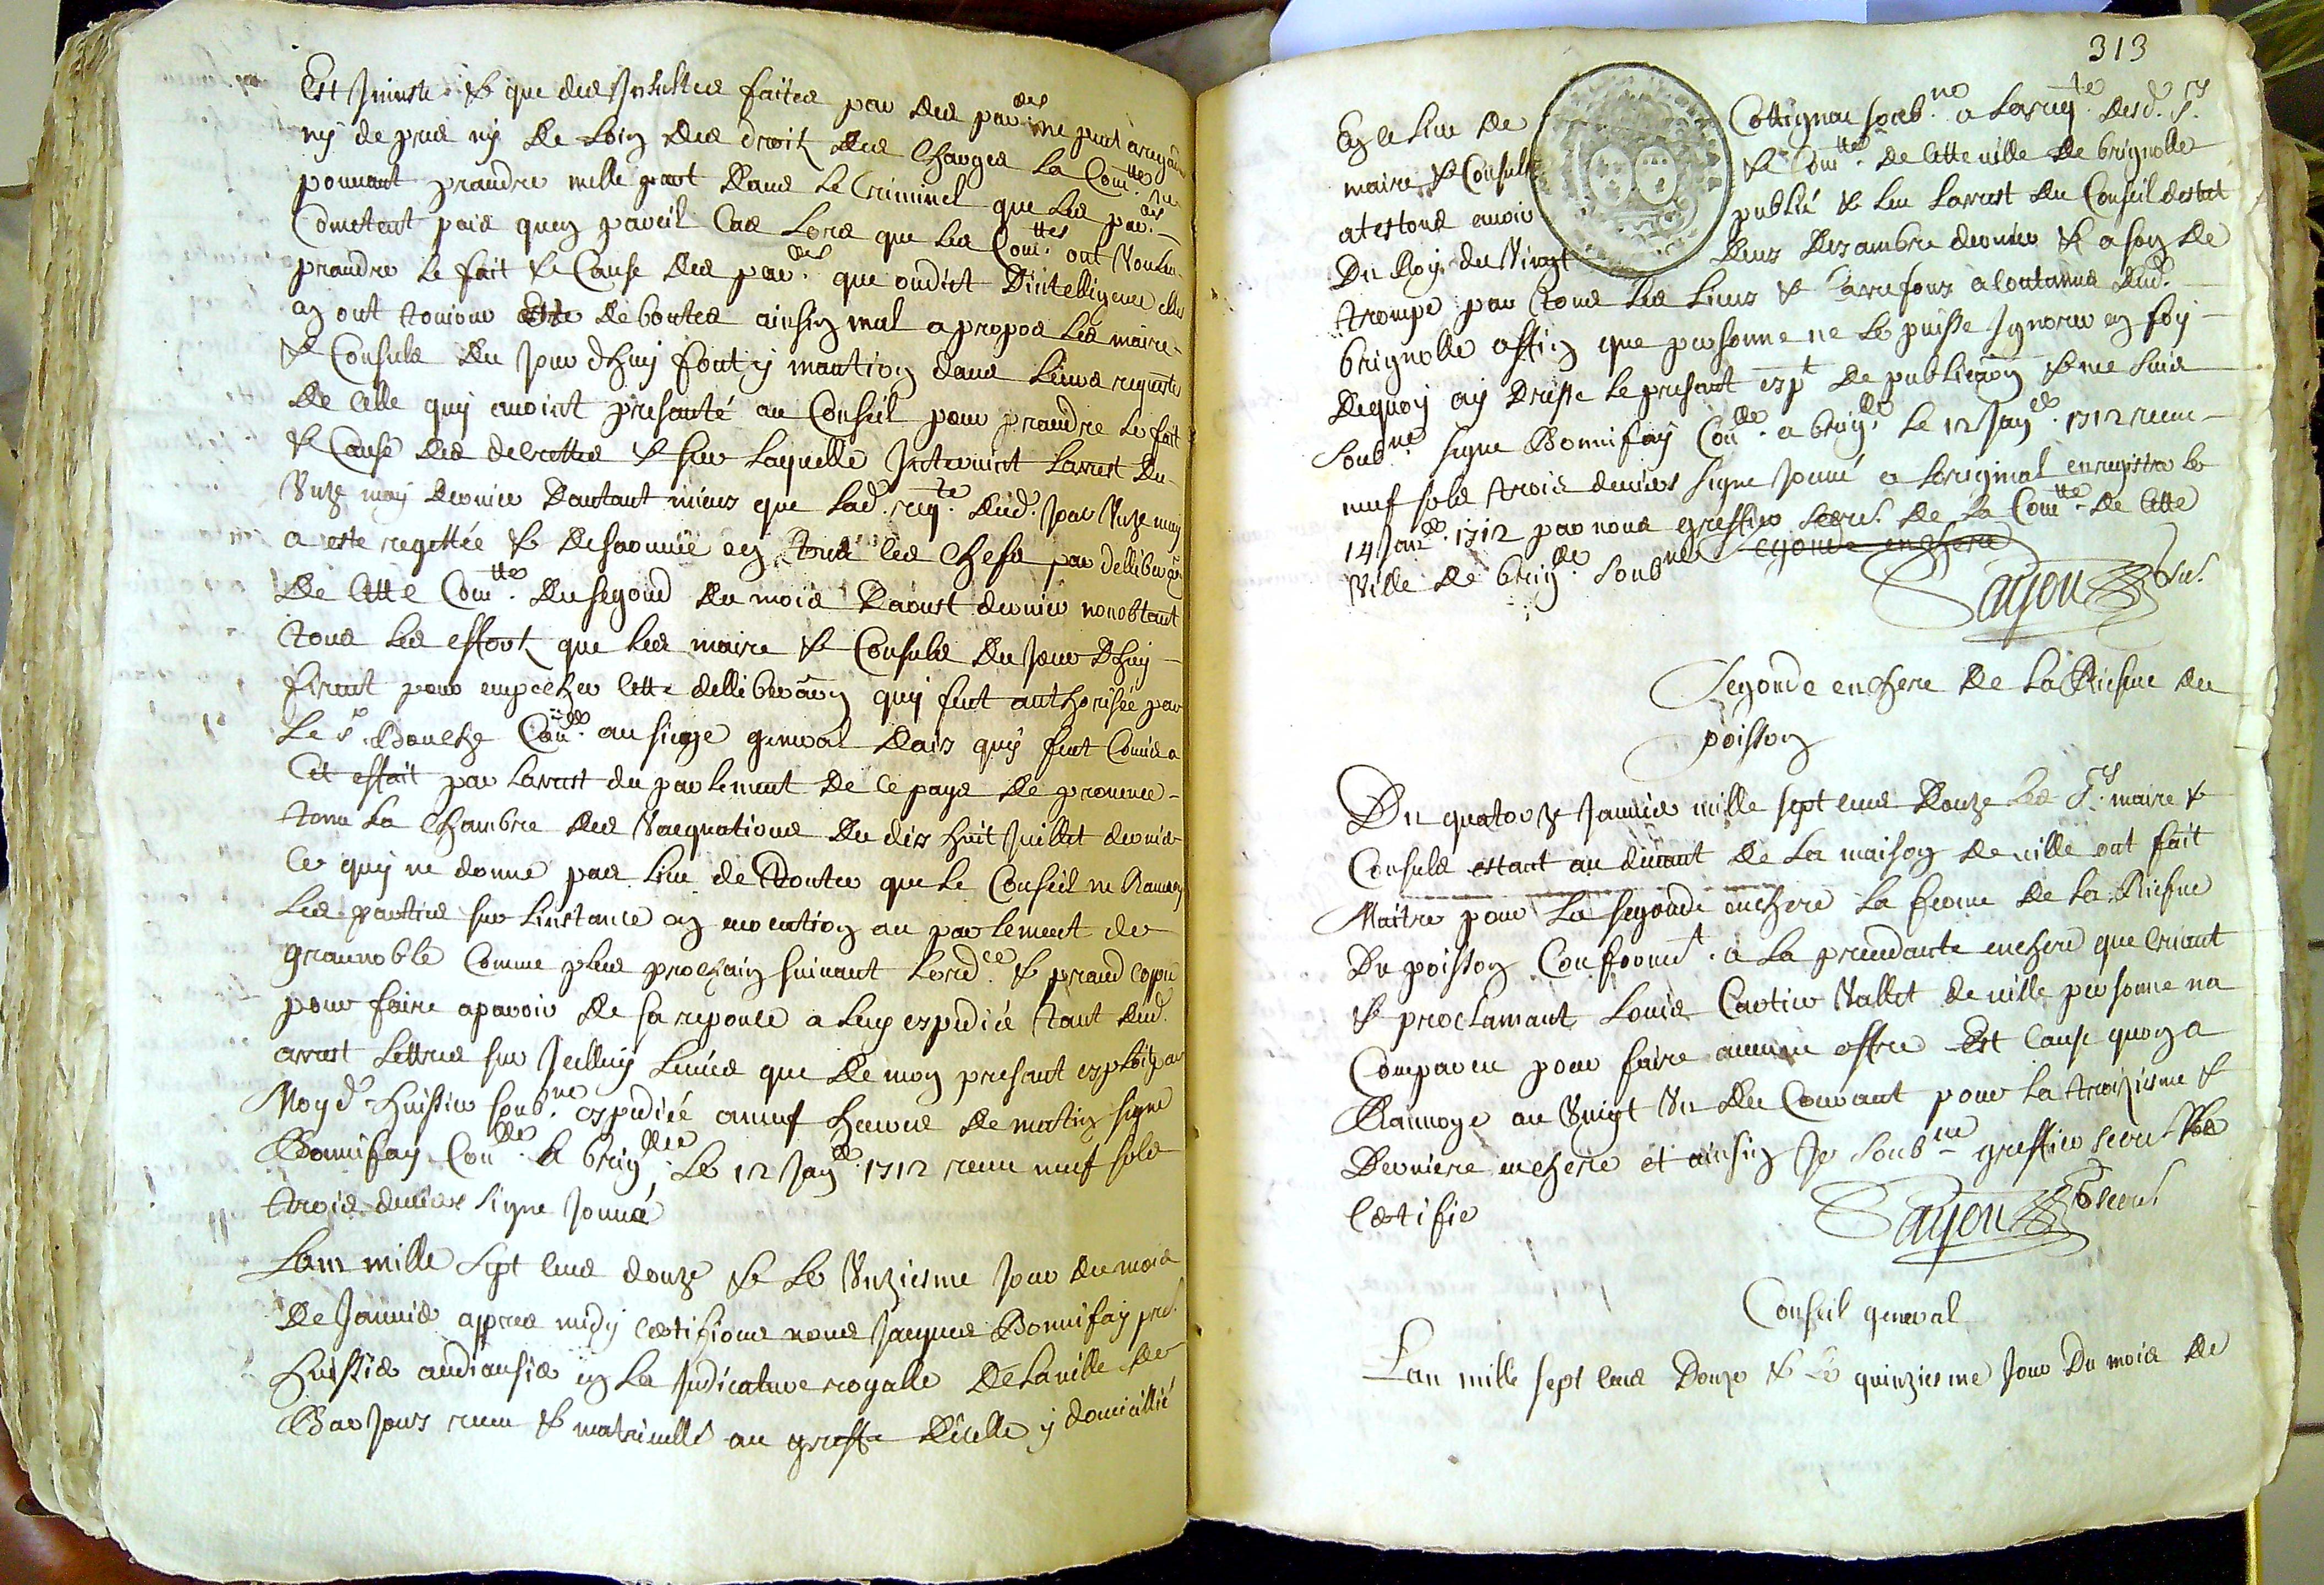 Est Injuste & que des Insultes faites par des par.ers ne peut aregarder
ny de pres ny de Loing des droitz des Charges La Com.tte ne
pouvant prandre nulle part dans Le Criminel que Les par.ers
Cometent pais quen pareil Cas Lors que Les Com.ttes ont Voulleu
prandre Le fait & Cause des par.ers que ondict Dintelligence elles
en ont toujour Esté deboutes ainsin mal apropos Les maire
& Consuls du Jour dhuy font y mantion dans Leurs requeste
de Celle quy avoint presanté au Conseil pour prandre Le fait
& Cause des decrettes & sur Laquelle Jntervint Larrest du
Vnze may dernier Dautant mieux que Lad. req.te dud. Jour Vnze may
a este regettée & desavouée en tous les Chefs par delliberãon
De Cette Com.tte du segond du mois Daoust dernier nonobstant
tous Les effortz que Les maire & Consuls du Jour Dhuy
firent pour empecher Cette delliberãon quy fut authorisée par
Le s.r Bouche Con.er au siege general daix quy fut Comis a
Cet effait par Larrest du parlement de Ce pays de provence
tenu La Chambre des Vacquations du dix huit Juillet dernier
Ce quy ne donne pas Lieu de Doutter que Le Conseil ne Ranvoy
Les parties sur Linstance en evocation au parlement de
grannoble Comme plus prochain suivant Lord.ce & prand Copie
pour faire aparoir de sa reponce a Luy expedié tant dud.
arrest Lettres sur Jcelluy Levées que de mon presant exploit par
Moy d. huissier soub.ne expedieé aneuf heures de matin signe
Bonnifay Con.lle a brig.lle Le 12 Jan.er 1712 receu neuf sols
trois deniers signe Jonné
Lan mille sept cens douze & Le Vnziesme Jour du mois
De Janvier appres midy certifions nous Jacques Bonnifay pre.r
huissier audiansier en La Judicature royalle de La ville de
Barjous receu & matriculle au greffe dicelle y domicillié
313
En ce Lieu de Cottignac soub.ne a Lareq.te desd. s.rs
maire & Consulz & Com.tté de Cette ville de brignolle
atestons avoir publié & Leu Larrest du Conseil destat
Du Roy du Vingt deux desambre dernier & a son de
trompe par tous Les Lieux & Carrefours acoutumes dud.
brignolle affin que personne ne Le puisse Jgnorer en foy
Dequoy ay Dresse Le presant exp.t De publicãon & me suis
soub.ne signe Bonnifay Con.lle a brig.lle Le 12 Jan.er 1712 receu
neuf sols trois deniers signe Jonné a Loriginal enregistre Le
14 Jan.er 1712 par nous greffier secre.re de La Com.tte de Cette
Ville de brig.lle soub.nes segonde enchere
Sayou secre.
Segonde enchere de La Riesve du
poisson
Du quatorze Janvier mille sept cens douze Les s.rs maire &
Consuls estant au divant de La maison de ville ont fait
Maitre pour La segonde enchere La ferme de La Riesve
Du poisson Conforme.t a La precedante enchere que criant
& proclamant Louis Cartier Vallet de ville personne na
Comparou pour faire aucune offre Est cause quon a
Ranvoye au Vuigt Vn du Courant pour La troiziesme &
Derniere enchere et ainsin Je soub.ne greffier secre.re
Certifie
Sayou secre.
Conseil general
Lan mille sept cens Douze & Le quinziesme Jour Du mois de